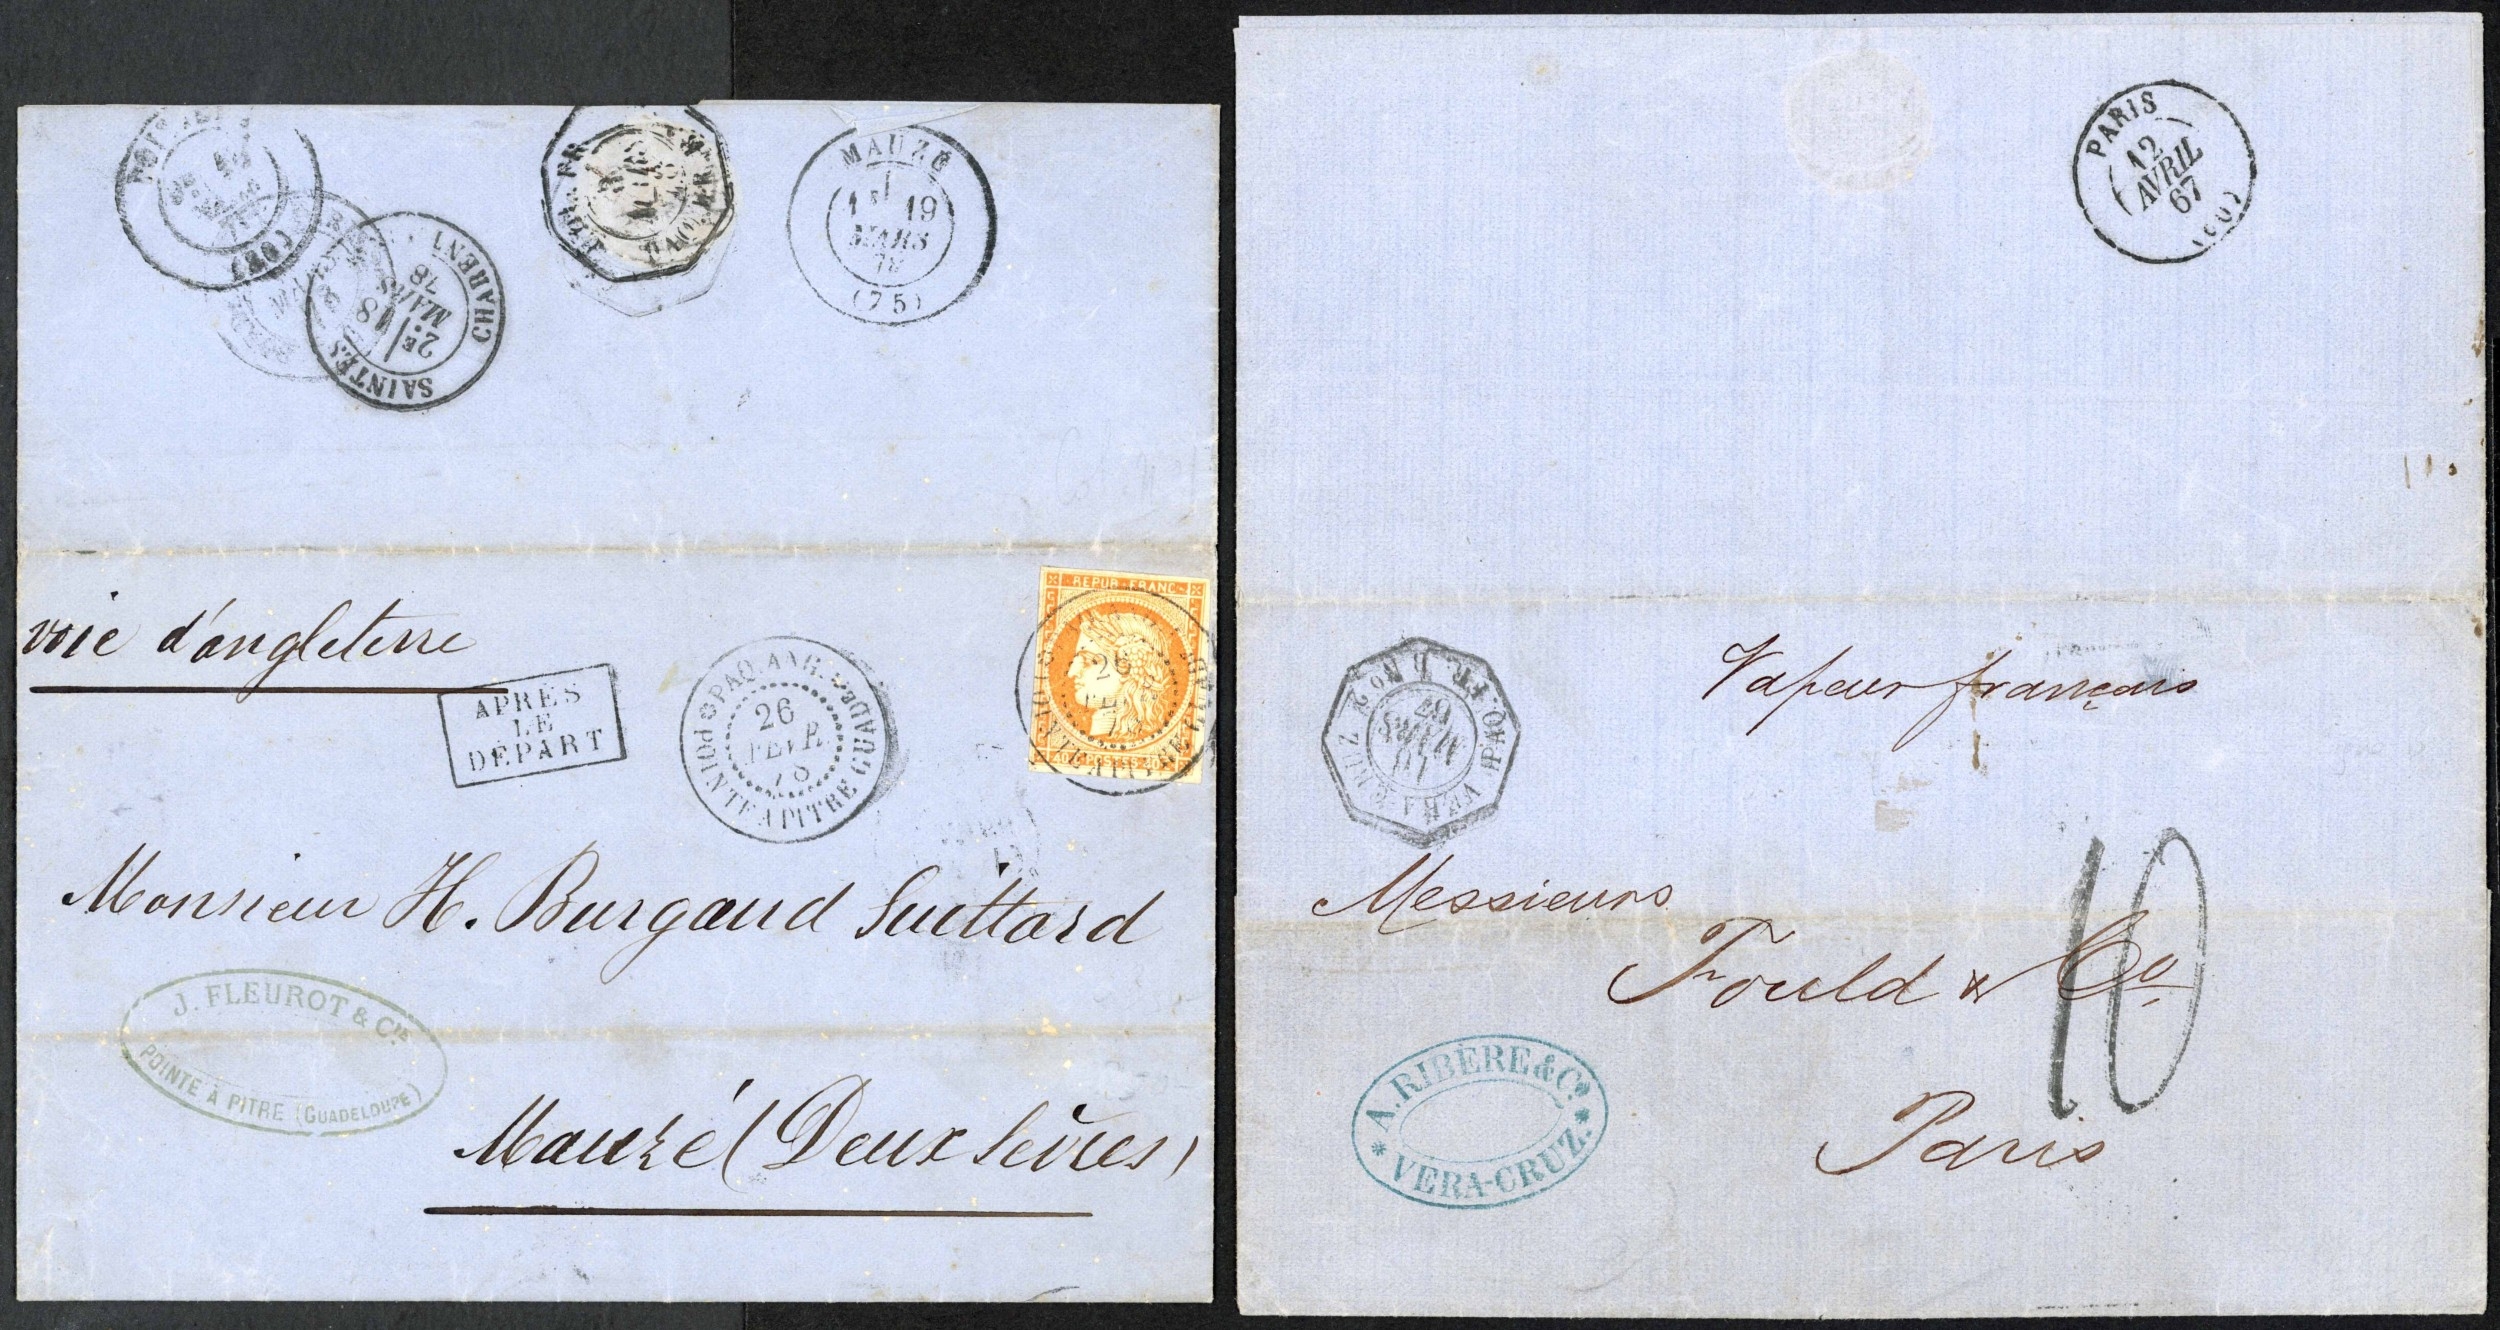 MAUZÉ
1E 19
MARS
78
(75)
SAINTES
2E
18
MARS
78
CHARENT
voie d'angleterre
APRÈS
LE
DÉPART
PAQ. ANG.
26
FEVR.
78
POINTE A PITRE GUADE
REPUB FRANC
26
POINTE A PITRE GUADE
40 C POSTES 40 C
Monsieur H. Burgaud Suittard
J. FLEUROT & CIE
POINTE À PITRE (GUADELOUPE)
Mauzé (Deux Sèvres)
PARIS
12
AVRIL
67
(60)
Vapeur français
VERA-CRUZ
PAQ. FR. B No 2
MARS
67
Messieurs
Fould & Co.
10
A. RIBÈRE & Co.
* VERA-CRUZ. *
Paris